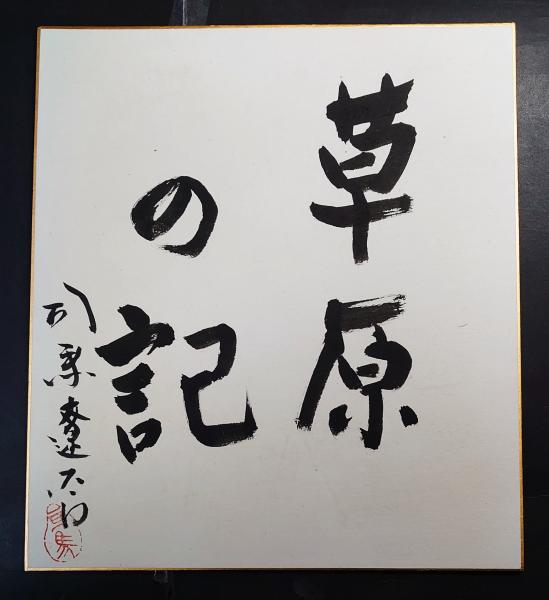 草原
の記
司馬遼太郎
司馬